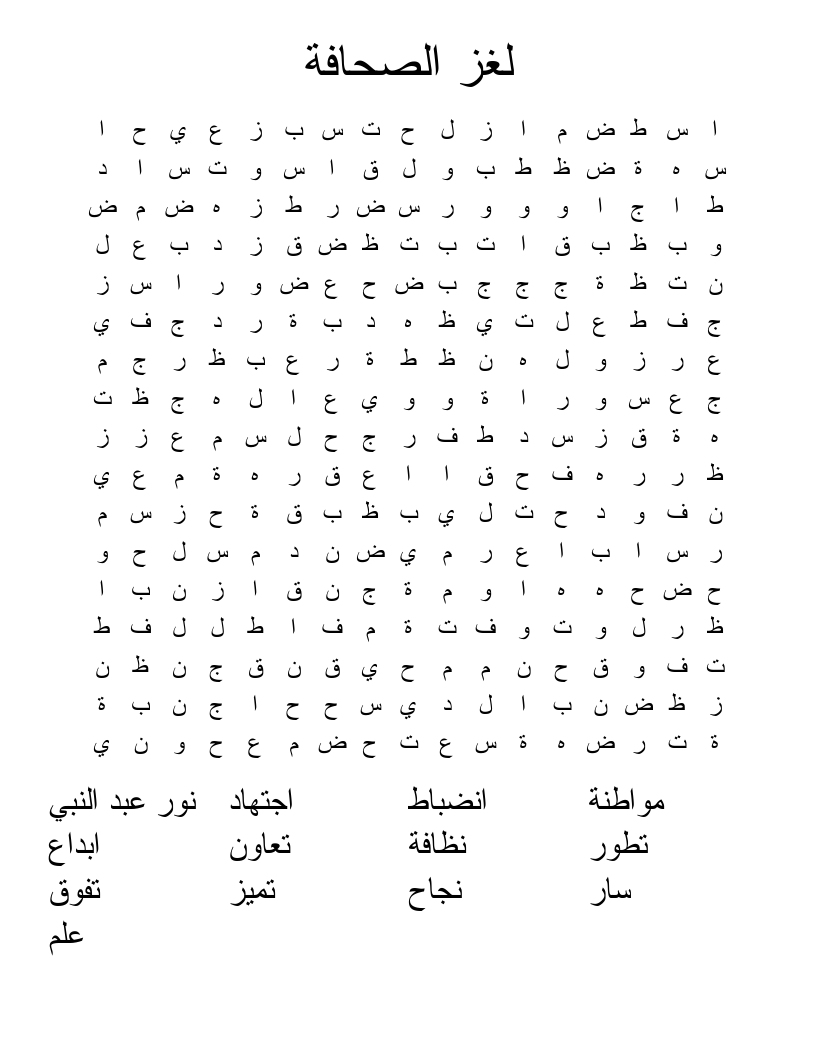 لغز الصحافة
ا س ط ض م ا ز ل ح ت س ب ز ع ي ح ا
س ه ة ض ظ ط ب و ل ق ا س و ت س ا د
ط ا ج ا و و و ر س ض ر ط ز ه ض م ض
و ب ظ ب ق ا ت ب ت ظ ض ق ز د ب ع ل
ن ت ظ ة ج ج ج ب ض ح ع ض و ر ا س ز
ج ف ط ع ل ت ي ظ ه د ب ة ر د ج ف ي
ع ر ز و ل ه ن ظ ط ة ر ع ب ظ ر ج م
ج ع س و ر ا ة و و ي ع ا ل ه ج ظ ت
ه ة ق ز س د ط ف ر ج ح ل س م ع ز ز
ظ ر ر ه ف ح ق ا ا ع ق ر ه ة م ع ي
ن ف و د ح ت ل ي ب ظ ب ق ة ح ز س م
ر س ا ب ا ع ر م ي ض ن د م س ل ح و
ح ض ح ه ه ا و م ة ج ن ق ا ز ن ب ا
ظ ر ل و ت و ف ت ة م ف ا ط ل ل ف ط
ت ف و ق ح ن م م ح ي ق ن ق ج ن ظ ن
ز ظ ض ن ب ا ل د ي س ح ح ا ج ن ب ة
ة ت ر ض ه ة س ع ت ح ض م ع ح و ن ي
مواطنة انضباط اجتهاد نور عبد النبي
تطور نظافة تعاون ابداع
سار نجاح تميز تفوق
علم